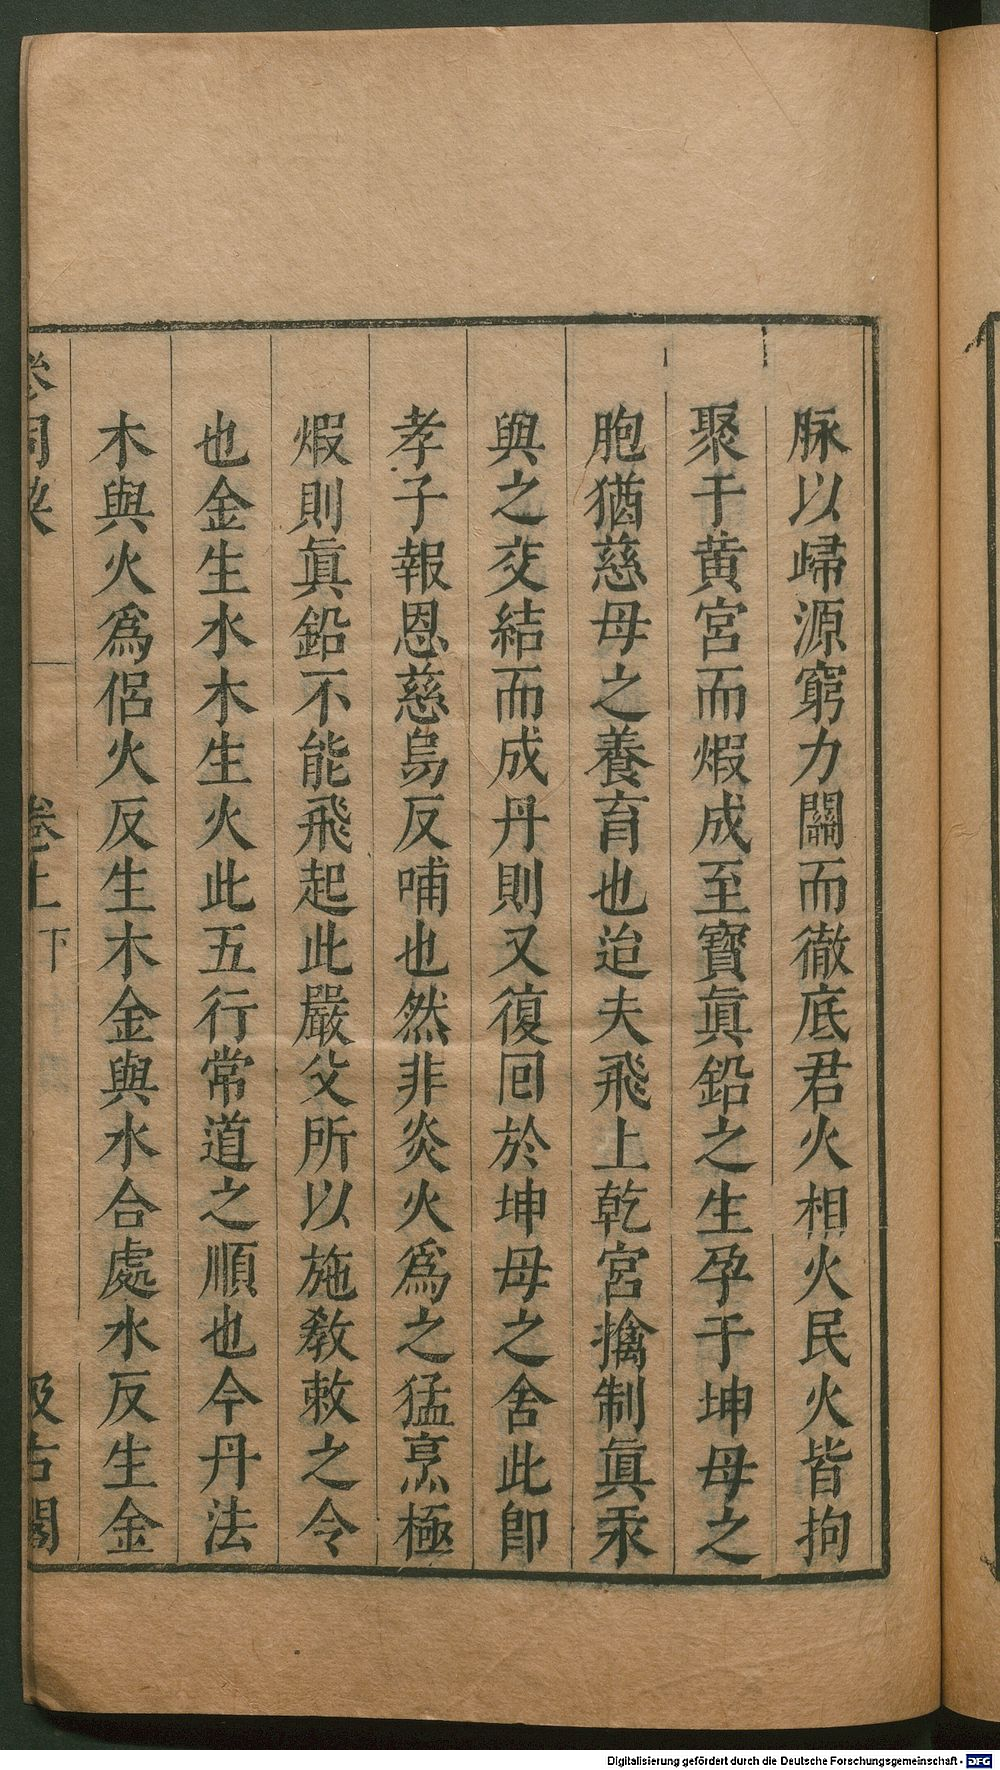 脉以歸源窮力闘而徹底君火相火民火皆拘
聚于黄宮而煆成至寶眞鉛之生孕于坤母之
胞猶慈母之養育也迨夫飛上乾宮擒制眞汞
與之交結而成丹則又復囘於坤母之舍此卽
孝子報恩慈烏反哺也然非炎火爲之猛烹極
煆則眞鉛不能飛起此嚴父所以施教敕之令
也金生水木生火此五行常道之順也今丹法
木與火爲侶火反生木金與水合處水反生金
卷上 下
汲古閣
Digitalisierung gefördert durch die Deutsche Forschungsgemeinschaft - DFG